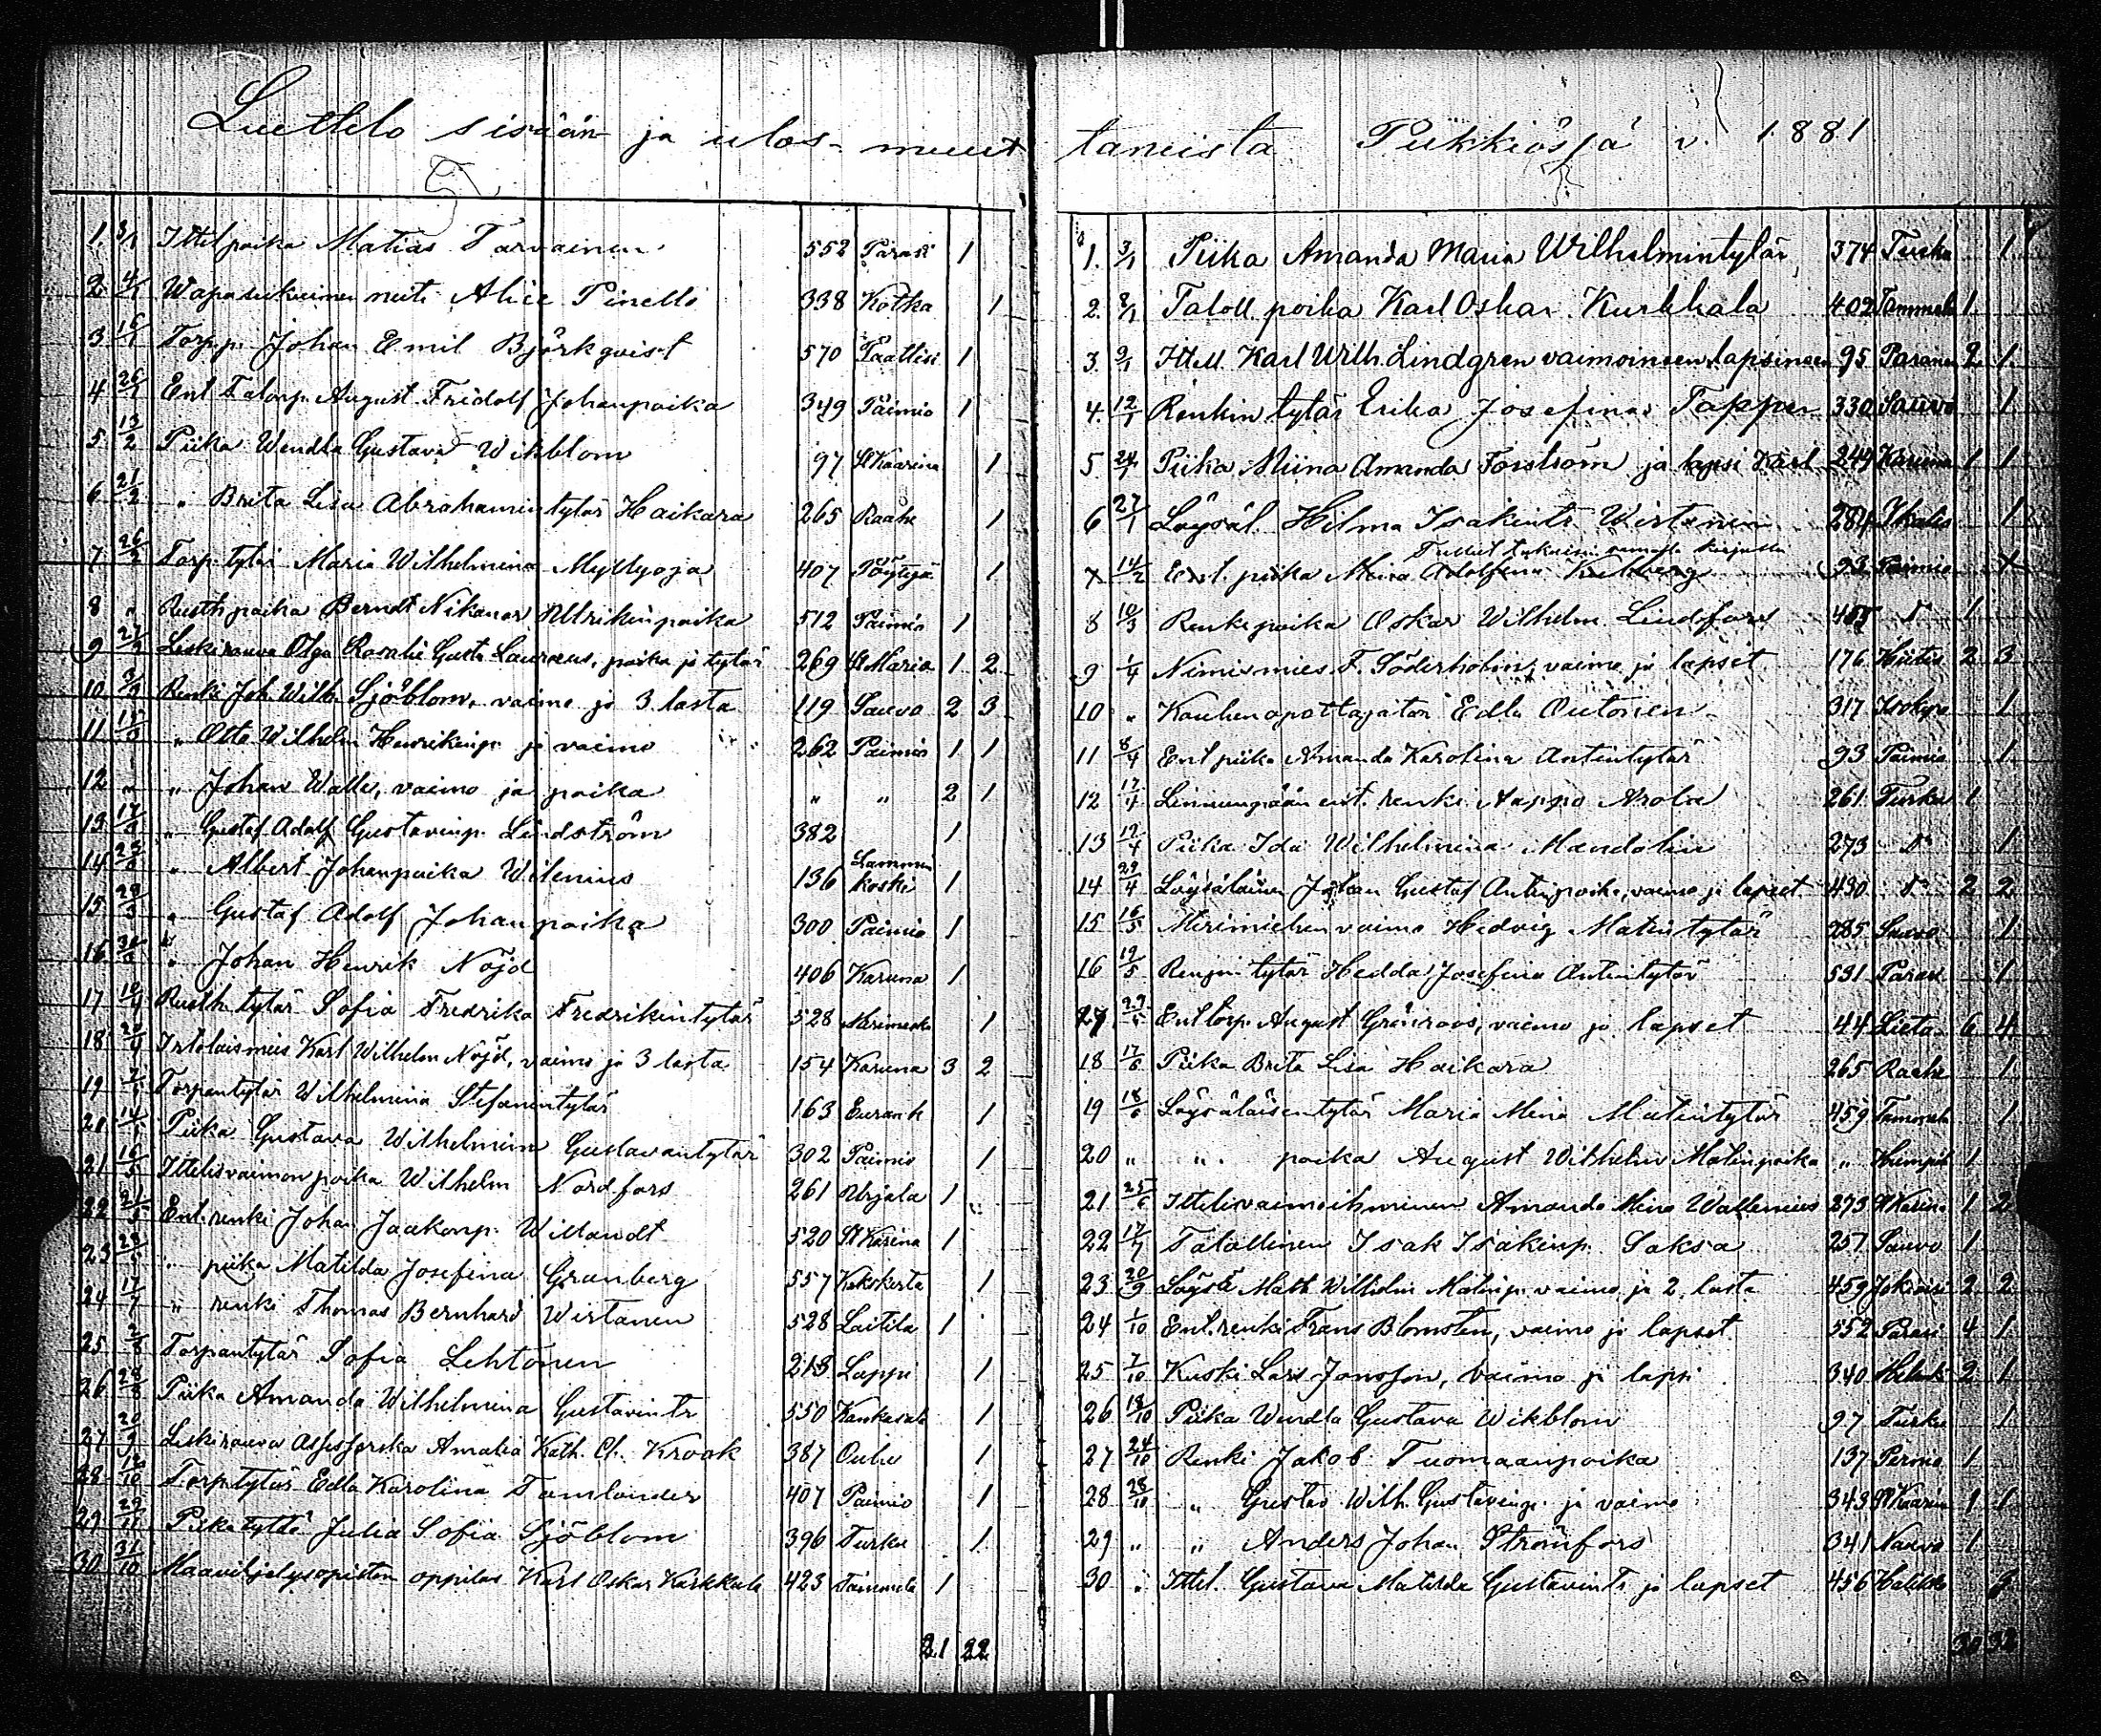 Luettelo sisään ja ulos-muut taneista Piikkiössä v. 1881
1. 3/1 Ittel poika Matias Tarvainen 552 Parais 1
2 4/1 Wapasukuinen neiti Alice Pinello 338 Kotka 1
3 16/1 Torp. p. Johan Emil Björkqvist 570 Paattisi 1
4 26/1 Ent August Fridolf Johanpoika 349 Paimio 1
5 13/2 Piika Wendla Gustava Wikblom 97 St Kaarina 1
6 21/2 " Brita Lisa Abrahamintytär Haikara 265 Raahe 1
7 26/2 Torp. tytär Maria Wilhelmina Myllyoja 407 Pöytyä 1
8 " Rusth poika Berndt Nikanor Ulrikinpoika 512 Paimio 1
9 27/2 Leskirouva Olga Rosalie Gusta Lauraeus, poika ja tytär 269 St Maria 1 2
10 3/3 Renki Joh. Wilh. Sjöblom, vaimo ja 3 lasta 119 Sauvo 2 3
11 " Otto Wilhelm Henrikinp. ja vaimo 262 Paimio 1 1
12 " " Johan Walle, vaimo ja poika " " 2 1
13 17/3 " Gustaf Adolf Gustavinp. Lindström 382 1
14 " Albert Johanpoika Wilenius 136 Lammin koski 1
15 28/3 " Gustaf Adolf Johanpoika 300 Paimio 1
16 " Johan Henrik Nöjd 406 Karuna 1
17 10/4 Rusth. tytär Sofia Fredrika Fredrikintytär 528 Marimasku 1
18 20/4 Irtolaismies Karl Wilhelm Nöjd, vaimo ja 3 lasta 154 Karuna 3 2
19 Torpantytär Wilhelmina Stefanintytär 163 1
20 14/5 Piika Gustava Wilhelmina Gustavantytär 302 Paimio 1
21 16/5 Ittelisvaimon poika Wilhelm Nordfors 261 Urjala 1
22 21/5 Ent. renki Johan Jaakonp. Willandt 520 St Karina 1
23 28/5 " piika Matilda Josefina Granberg 557 Kakskerta 1
24 17/7 " renki Thomas Bernhard Wirtanen 528 Laitila 1
25 2/8 Torpantytär Sofia Lehtonen 213 Lappi 1
26 28/8 Piika Amanda Wilhelmina Gustavintr 550 Kankasala 1
27 20/9 Leskirouva Assessorska Amalia Kath. Ch. Krook 387 Oulu 1
28 12/10 Torp. tytär Edla Karolina Tamlander 407 Paimio 1
29 Piikatyttö Julia Sofia Sjöblom 396 Turku 1
30 31/10 Maaviljelysopiston oppilas Karl Oskar Kurkkala 423 Tammela 1
21 22
1. 3/1 Piika Amanda Maria Wilhelmintytär 374 Turku 1
2. 8/1 Taloll. poika Karl Oskar Kurkkala 402 Tammela 1
3. 9/1 Ittell. Karl Wilh. Lindgren vaimoineen lapsineen 95 Parainen 2 1
4. 12/1 Renkin tytär Erika Josefina Tapper 330 Sauvo 1
5 24/1 Piika Miina Amanda Forström ja lapsi Karl 244 Karuna 1 1
6 27/1 Löysäl. Hilma Isakintr. Wirtanen 284 Ikalis 1
7 14/2 Ent. piika Mina Adolfina 93 Paimio 1
8 10/3 Renkipoika Oskar Wilhelm Lindfors 405 d:o 1
9 1/4 Nimismies F. Söderholm, vaimo ja lapset 176 Hiitis 2 3
10 " Kauhenopettajatar Edla Outonen 317 Isokyrö 1
11 8/4 Ent piika Amanda Karolina Antintytär 93 Paimio 1
12 17/4 Linnunpään ent. renki Aappo Arola 261 Turku 1
13 19/4 Piika Ida Wilhelmina Mandolin 273 d:o 1
14 29/4 Löysäläinen Johan Gustaf Antinpoika, vaimo ja lapset 430 d:o 2 2
15 16/5 Merimiehen vaimo Hedvig Matintytär 285 Sauvo 1
16 19/5 Rengin tytär Hedda Josefina Antintytär 531 Parais 1
17 Ent torp. August Grönroos, vaimo ja lapset 44 Lieto 6 4
18 17/6 Piika Brita Lisa Haikara 265 Raahe 1
19 18/6 Löysäläisentytär Maria Mina Matintytär 459 Tammela 1
20 " " poika August Wilhelm Matinpoika " Humppi 1
21 25/6 Ittelisvaimoihminen Amanda Mina Wallenius 273 St Karina 1 2
22 17/7 Talollinen Isak Isakinp. Saksa 257 Sauvo 1
23 20/9 Löysä Matts Wilhelm Matinp. vaimo ja 2 lasta 459 Jokiois 2 2
24 1/10 Ent. renki Frans Blomsten, vaimo ja lapset 552 Parais 4 1
25 7/10 Kuski Lars Jonsson, vaimo ja lapsi 340 Helsinki 2 1
26 18/10 Piika Wendla Gustava Wikblom 97 Turku 1
27 24/10 Renki Jakob Tuomaanpoika 137 Perniö 1
28 28/10 " Gustav Wilh. Gustavinp. ja vaimo 343 St Kaarina 1 1
29 " " Anders Johan Strömfors 341 Nauvo 1
30 " Ittel. Gustava Matilda Gustavintr ja lapset 456 Halikko 3